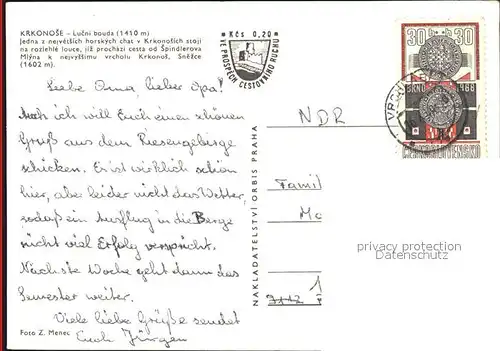 KRKONOŠE – Luční bouda (1410 m)
Jedna z největších horských chat v Krkonoších stojí
na rozlehlé louce, jíž prochází cesta od Špindlerova
Mlýna k nejvyššímu vrcholu Krkonoš, Sněžce
(1602 m).
Kčs 0,20
VE PROSPĚCH CESTOVNÍHO RUCHU
30 30
BRNO 1966
ČESKOSLOVENSKO
VRCHLABÍ
Liebe Oma, lieber Opa!
Auch ich will Euch einen schönen
Gruß aus dem Riesengebirge
schicken. Es ist wirklich schön
hier, aber leider nicht das Wetter,
sodaß ein Ausflug in die Berge
nicht viel Erfolg verspricht.
Nächste Woche geht dann das
Semester weiter.
Viele liebe Grüße sendet
Euch Jürgen
Foto Z. Menec
NAKLADATELSTVÍ ORBIS PRAHA
NDR
Famil
Mo
1
privacy protection
Datenschutz